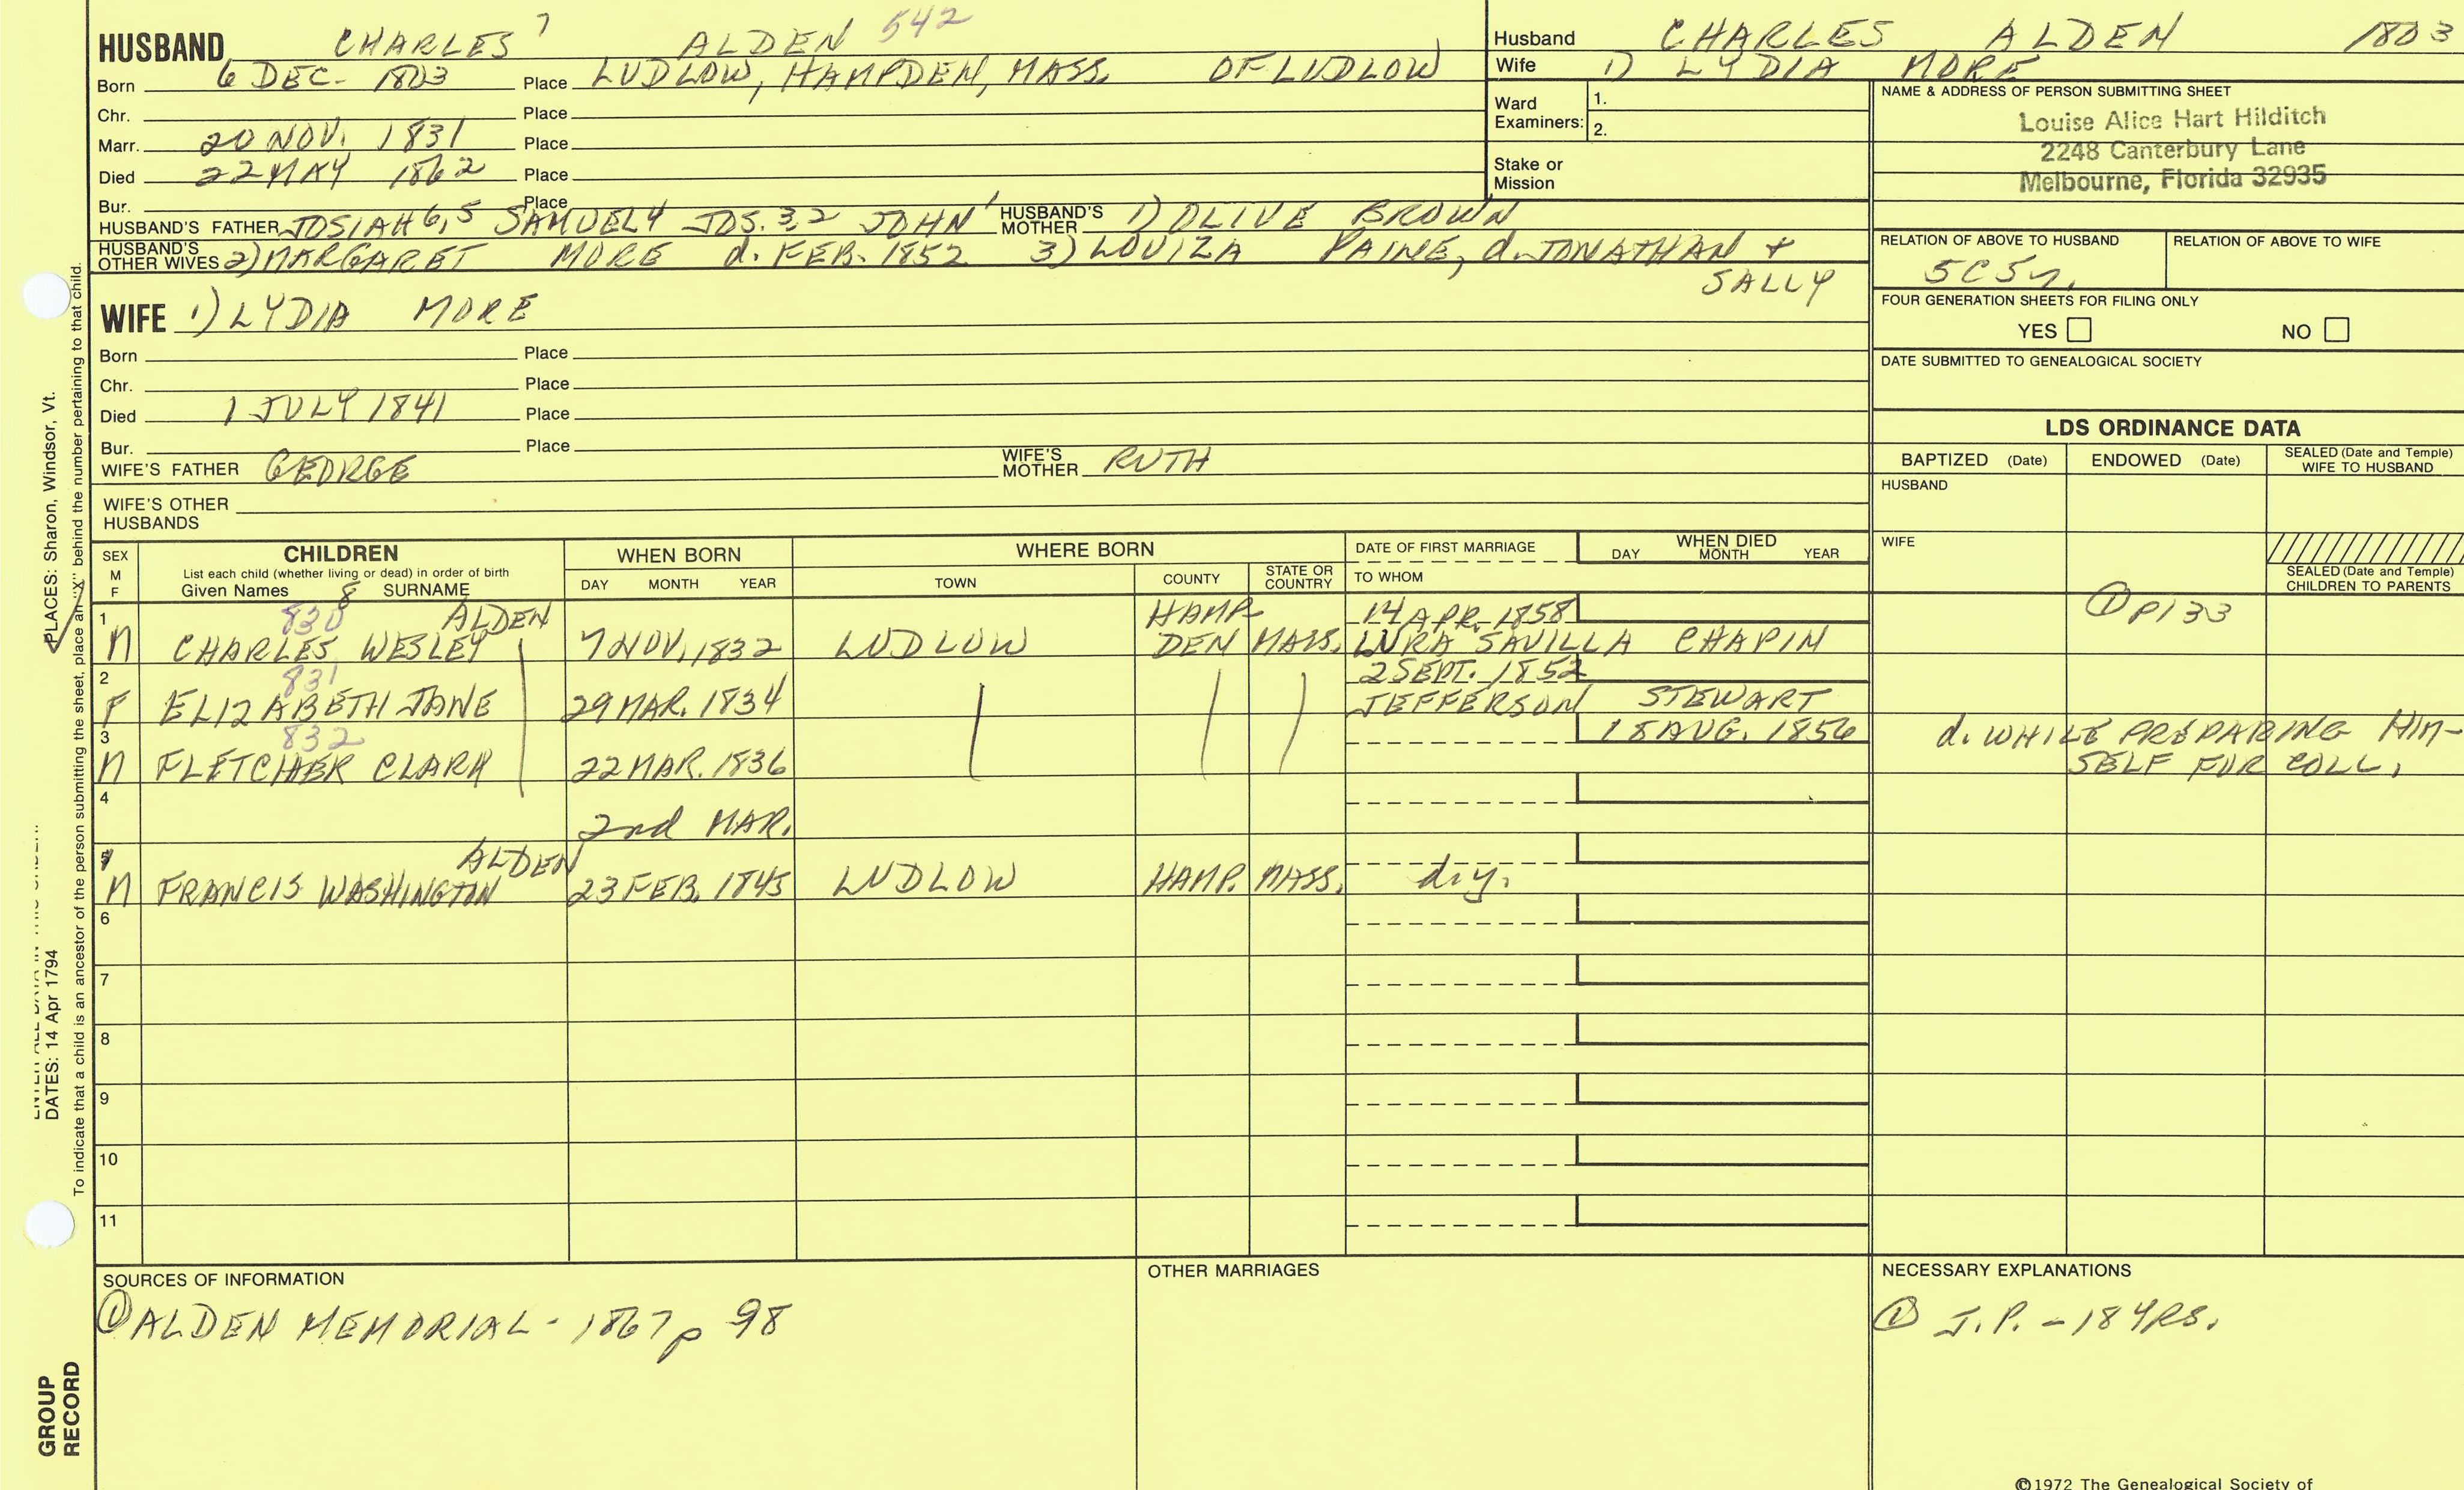 HUSBAND CHARLES 7 ALDEN 542
Born 6 DEC. 1803 Place LUDLOW, HAMPDEN, MASS. OF LUDLOW
Chr. Place
Marr. 20 NOV. 1831 Place
Died 22 MAY 1862 Place
Bur. Place
HUSBAND'S FATHER JOSIAH 6,5 SAMUEL 4 JOS. 3,2 JOHN 1 HUSBAND'S MOTHER 1) OLIVE BROWN
HUSBAND'S OTHER WIVES 2) MARGARET MORE d. FEB. 1852 3) LOUIZA PAINE, d. JONATHAN +
SALLY
WIFE 1) LYDIA MORE
Born Place
Chr. Place
Died 1 JULY 1841 Place
Bur. Place
WIFE'S FATHER GEORGE WIFE'S MOTHER RUTH
WIFE'S OTHER HUSBANDS
Husband CHARLES ALDEN 1803
Wife 1) LYDIA MORE
Ward Examiners: 1.
2.
Stake or Mission
NAME & ADDRESS OF PERSON SUBMITTING SHEET
Louise Alice Hart Hilditch
2248 Canterbury Lane
Melbourne, Florida 32935
RELATION OF ABOVE TO HUSBAND RELATION OF ABOVE TO WIFE
5C5r.
FOUR GENERATION SHEETS FOR FILING ONLY
YES NO
DATE SUBMITTED TO GENEALOGICAL SOCIETY
LDS ORDINANCE DATA
BAPTIZED (Date) ENDOWED (Date) SEALED (Date and Temple) WIFE TO HUSBAND
HUSBAND
WIFE
SEALED (Date and Temple) CHILDREN TO PARENTS
SEX M F CHILDREN WHEN BORN WHERE BORN DATE OF FIRST MARRIAGE WHEN DIED
List each child (whether living or dead) in order of birth
Given Names 8 SURNAME DAY MONTH YEAR TOWN COUNTY STATE OR COUNTRY TO WHOM DAY MONTH YEAR
1 830 ALDEN HAMP- 14 APR. 1858 ① P133
M CHARLES WESLEY 7 NOV. 1832 LUDLOW DEN MASS. LURA SAVILLA CHAPIN
2 831 2 SEPT. 1852
F ELIZABETH JANE 29 MAR. 1834 JEFFERSON STEWART
3 832 18 AUG. 1856 d. WHILE PREPARING HIM-
M FLETCHER CLARK 22 MAR. 1836 SELF FOR COLL.
4
2nd MAR.
5 ALDEN
M FRANCIS WASHINGTON 23 FEB. 1845 LUDLOW HAMP. MASS. d.y.
6
7
8
9
10
11
SOURCES OF INFORMATION
① ALDEN MEMORIAL - 1867 p 98
OTHER MARRIAGES
NECESSARY EXPLANATIONS
① J.P. - 18 YRS.
©1972 The Genealogical Society of
PLACES: Sharon, Windsor, Vt.
DATES: 14 Apr 1794
To indicate that a child is an ancestor of the person submitting the sheet, place an "X" behind the number pertaining to that child.
GROUP RECORD